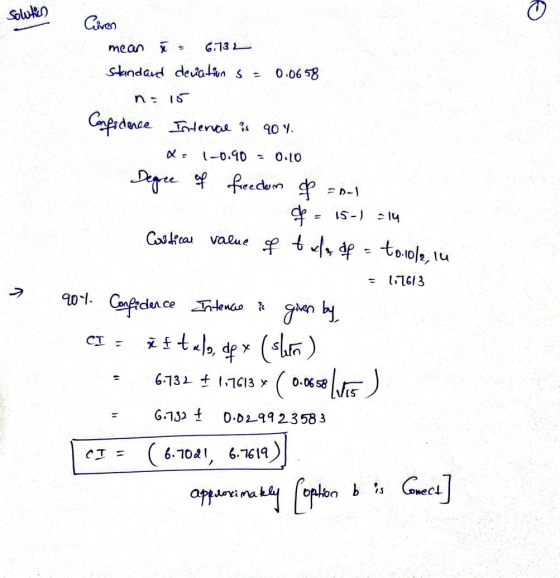 Solution
①
Given
mean x̄ = 6.732
Standard deviation s = 0.0658
n = 15
Confidence Interval is 90%.
α = 1-0.90 = 0.10
Degree of freedom df = n-1
df = 15-1 = 14
Critical value of t α/2, df = t0.10/2, 14
= 1.7613
→ 90%. Confidence Interval is given by,
CI = x̄ ± t α/2, df × (s/√n)
= 6.732 ± 1.7613 × (0.0658/√15)
= 6.732 ± 0.029923583
CI = (6.7021, 6.7619)
approximately [option b is Correct]